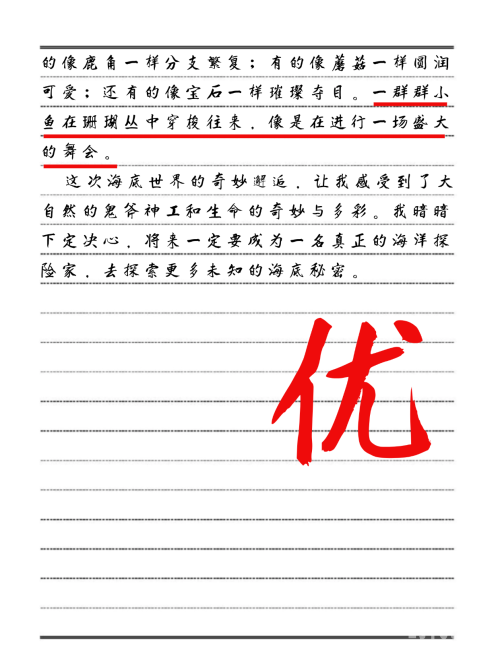 的像鹿角一样分支繁复；有的像蘑菇一样圆润
可爱；还有的像宝石一样璀璨夺目。一群群小
鱼在珊瑚丛中穿梭往来，像是在进行一场盛大
的舞会。
这次海底世界的奇妙邂逅，让我感受到了大
自然的鬼斧神工和生命的奇妙与多彩。我暗暗
下定决心，将来一定要成为一名真正的海洋探
险家，去探索更多未知的海底秘密。
优